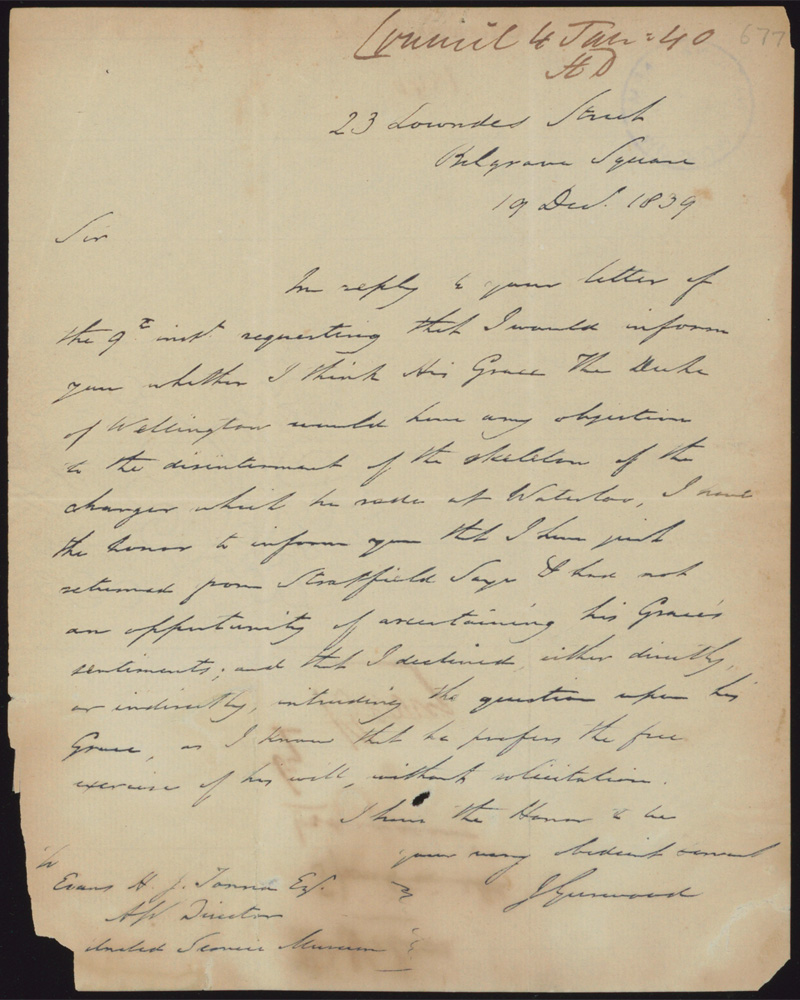 Council 4 Jan = 40
HD
677
23 Lowndes Street
Belgrave Square
19 Decr. 1839
Sir
In reply to your letter of
the 9th inst. requesting that I would inform
you whether I think His Grace The Duke
of Wellington would have any objection
to the disinterment of the skeleton of the
charger which he rode at Waterloo, I have
the honor to inform you that I have just
returned from Stratfield Saye & had not
an opportunity of ascertaining his Grace's
sentiments; and that I declined either directly,
or indirectly, intruding the question upon his
Grace, as I know that he prefers the free
exercise of his will, without solicitation.
I have the Honor to be
your very obedient servant
J Gurwood
To
Evans H. J. Tonna Esq.
Director
United Service Museum